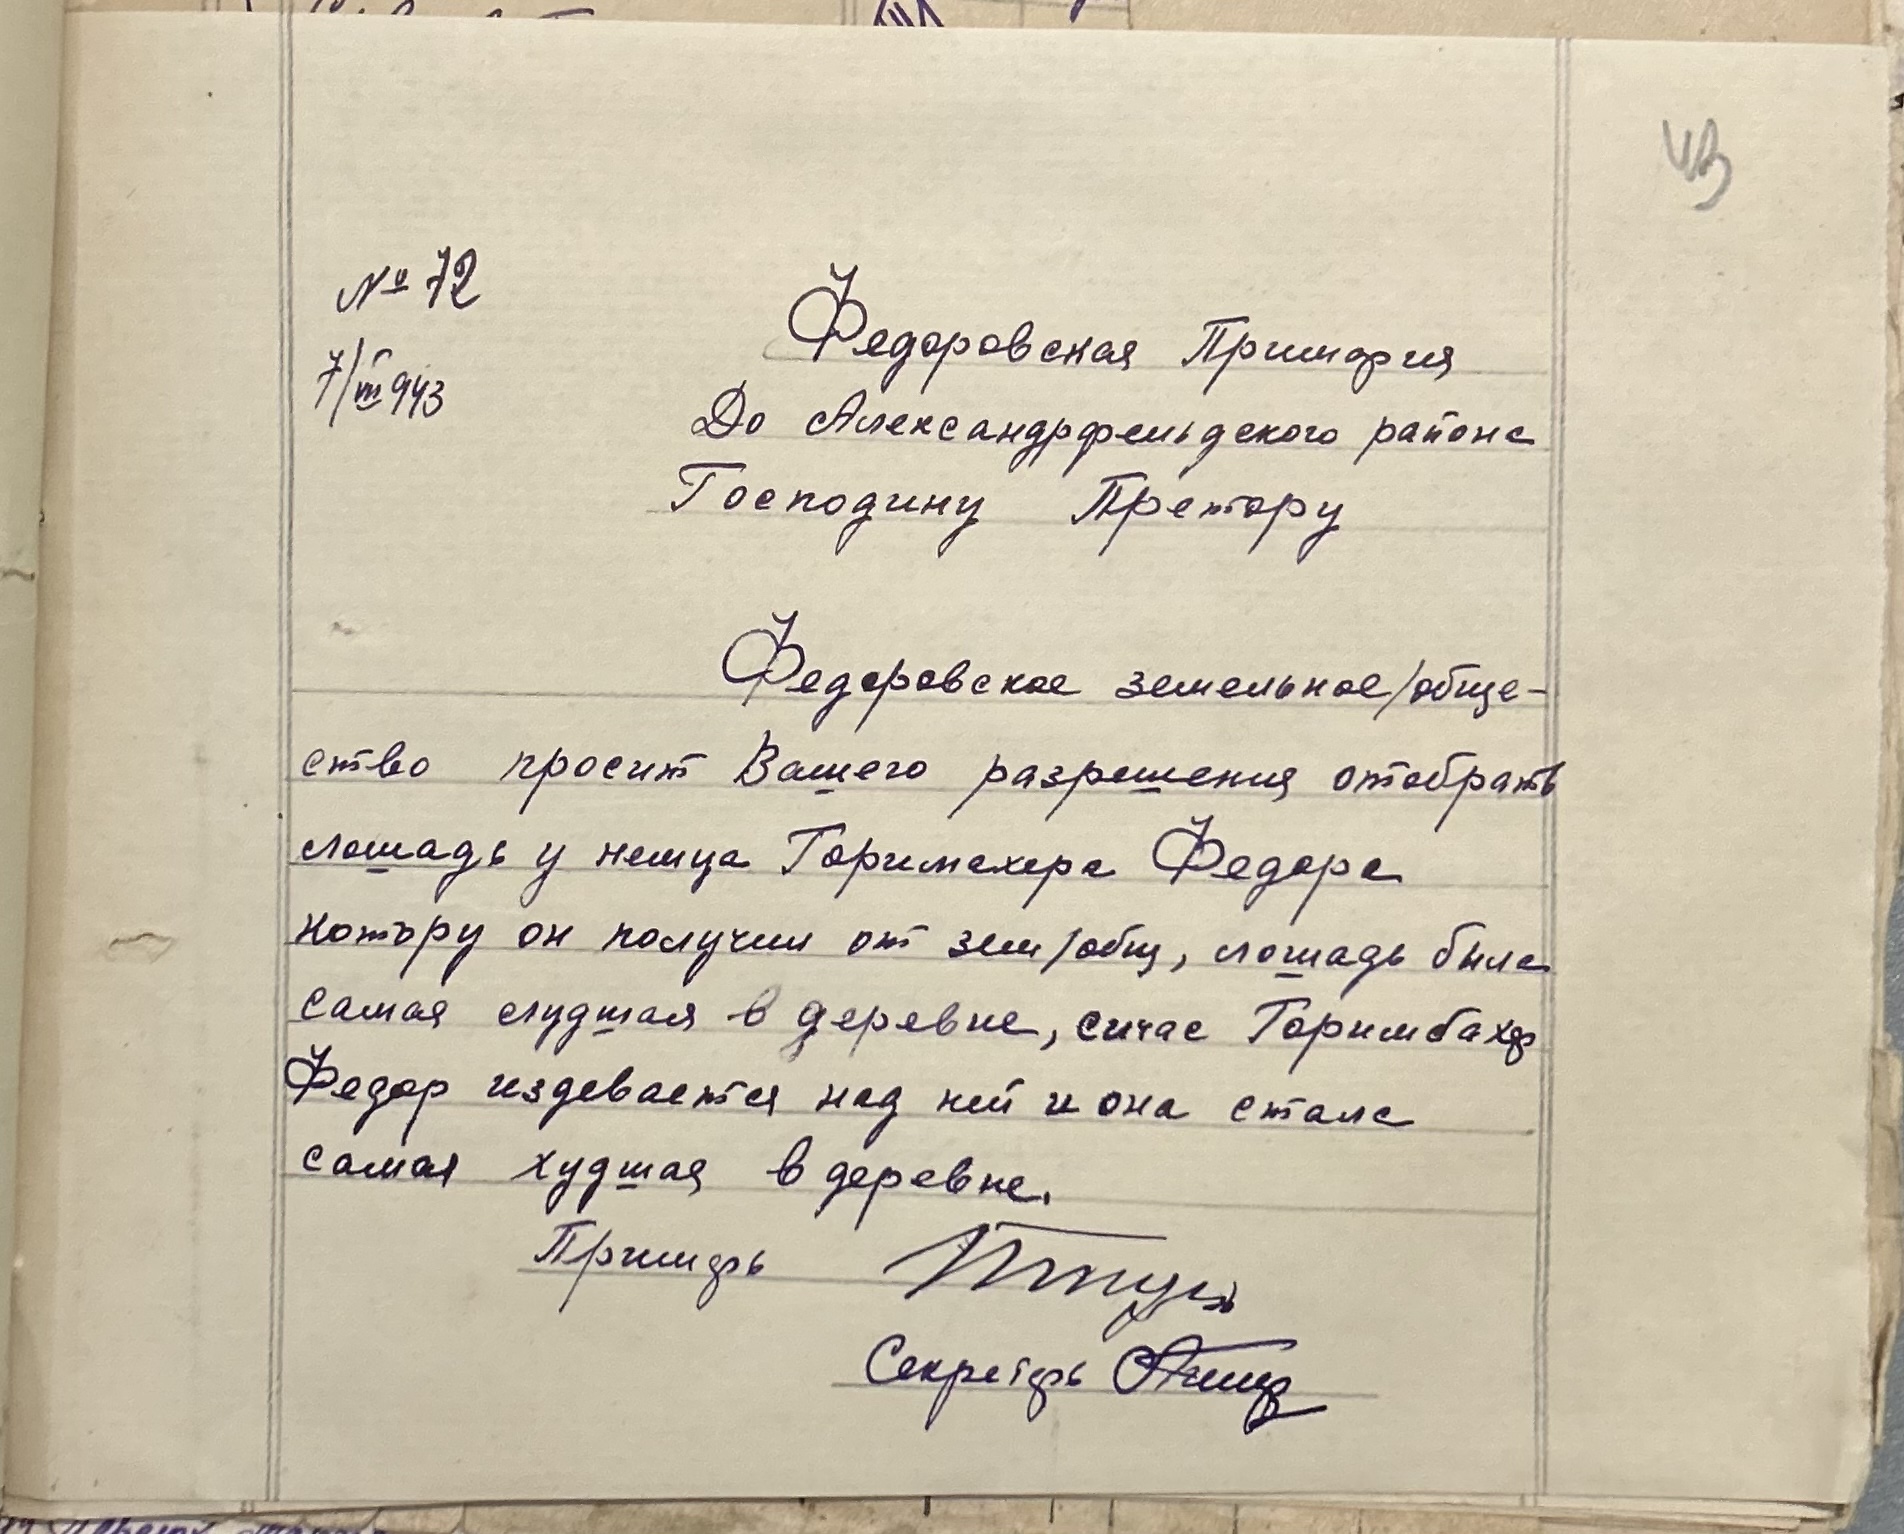 43
№ 72
7/III 943
Федоровская Примария
До Александрфельдского района
Господину Претору
Федоровское земельное/обще-
ство просит Вашего разрешения отобрать
лошадь у немца Горимахера Федора
котору он получил от зем/общ, лошадь была
самая слудшая в деревне, сичас Горимбахер
Федор издевается над ней и она стала
самая худшая в деревне.
Примарь
Секретарь